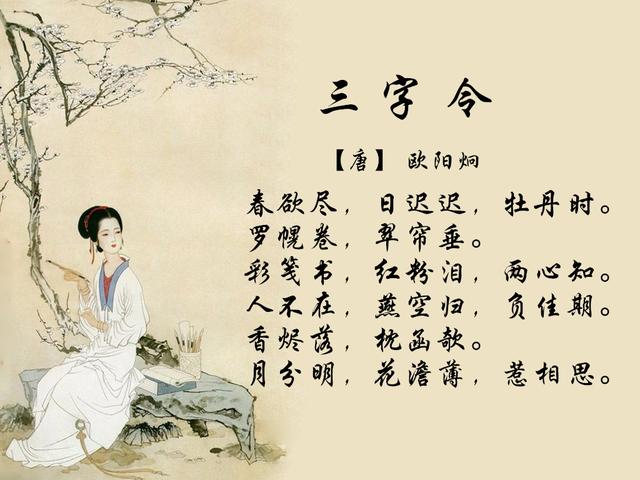 三字令
【唐】 欧阳炯
春欲尽，日迟迟，牡丹时。
罗幌卷，翠帘垂。
彩笺书，红粉泪，两心知。
人不在，燕空归，负佳期。
香烬落，枕函歌。
月分明，花澹薄，惹相思。